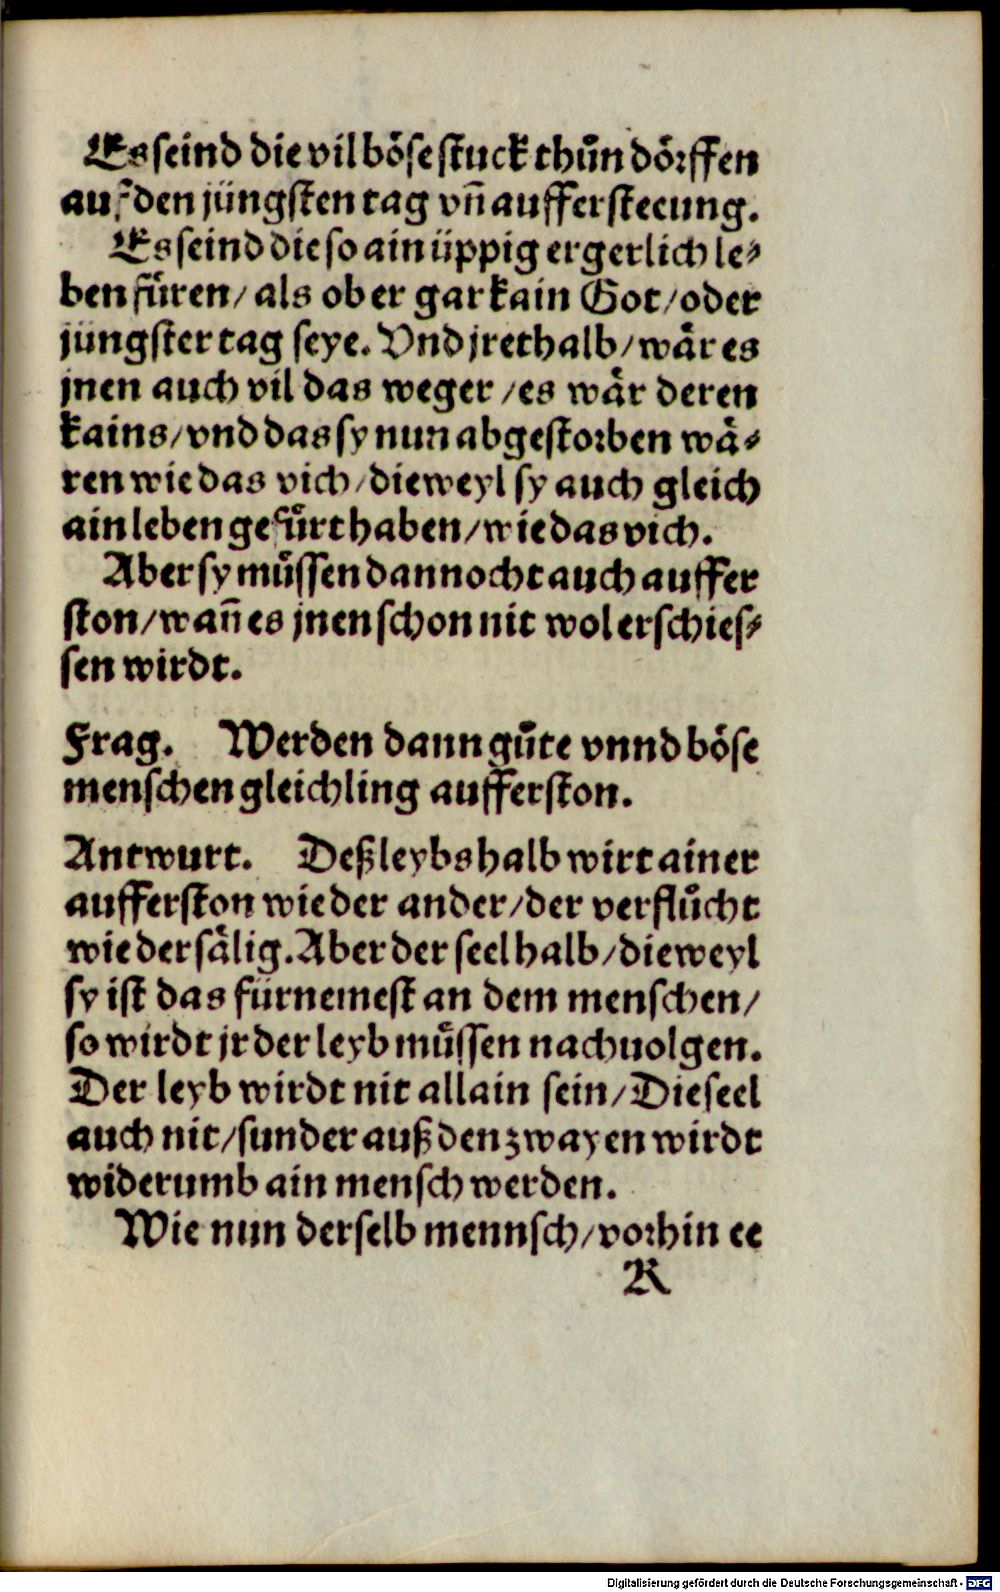 Es seind die vil böse stuck thůn dörffen
auf den jüngsten tag vñ aufferstecung.
Es seind die so ain üppig ergerlich le⸗
ben fůren/ als ob er gar kain Got/ oder
jüngster tag seye. Vnd jrethalb/ wår es
jnen auch vil das weger/ es wår deren
kains/ vnd das sy nun abgestorben wå⸗
ren wie das vich/ dieweyl sy auch gleich
ain leben gefůrt haben/ wie das vich.
Aber sy můssen dannocht auch auffer
ston/ wañ es jnen schon nit wol erschies⸗
sen wirdt.
Frag. Werden dann gůte vnnd böse
menschen gleichling aufferston.
Antwurt. Deß leybs halb wirt ainer
aufferston wie der ander/ der verflůcht
wie der sålig. Aber der seel halb/ dieweyl
sy ist das fürnemest an dem menschen/
so wirdt jr der leyb můssen nachuolgen.
Der leyb wirdt nit allain sein/ Die seel
auch nit/ sunder auß den zwayen wirdt
widerumb ain mensch werden.
Wie nun derselb mennsch/ vorhin ee
R
Digitalisierung gefördert durch die Deutsche Forschungsgemeinschaft - DFG